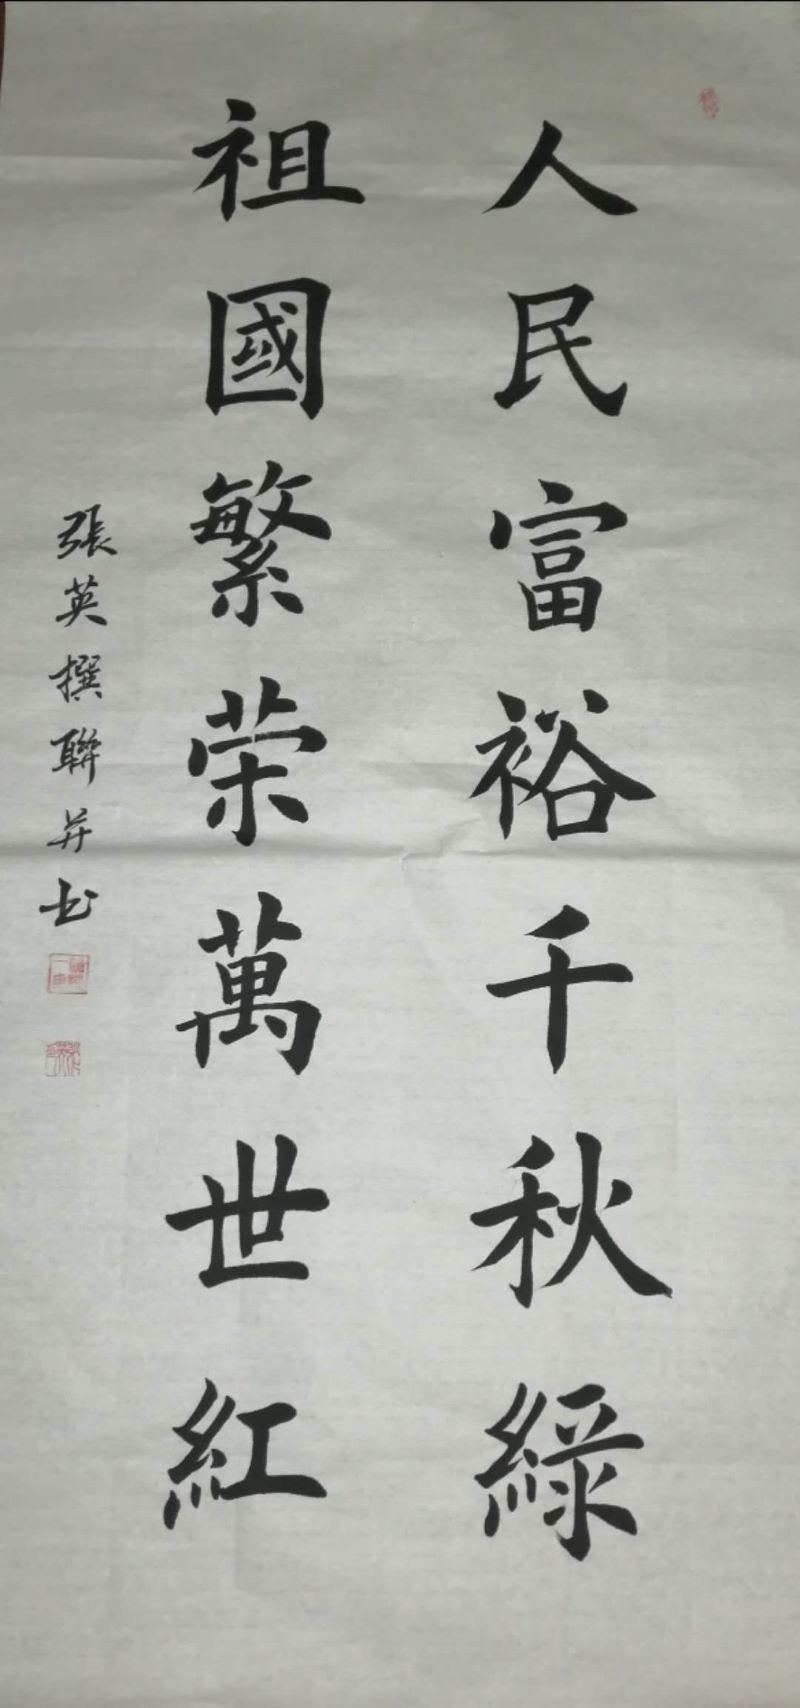 人民富裕千秋綠
祖國繁荣萬世紅
張英撰聯并书